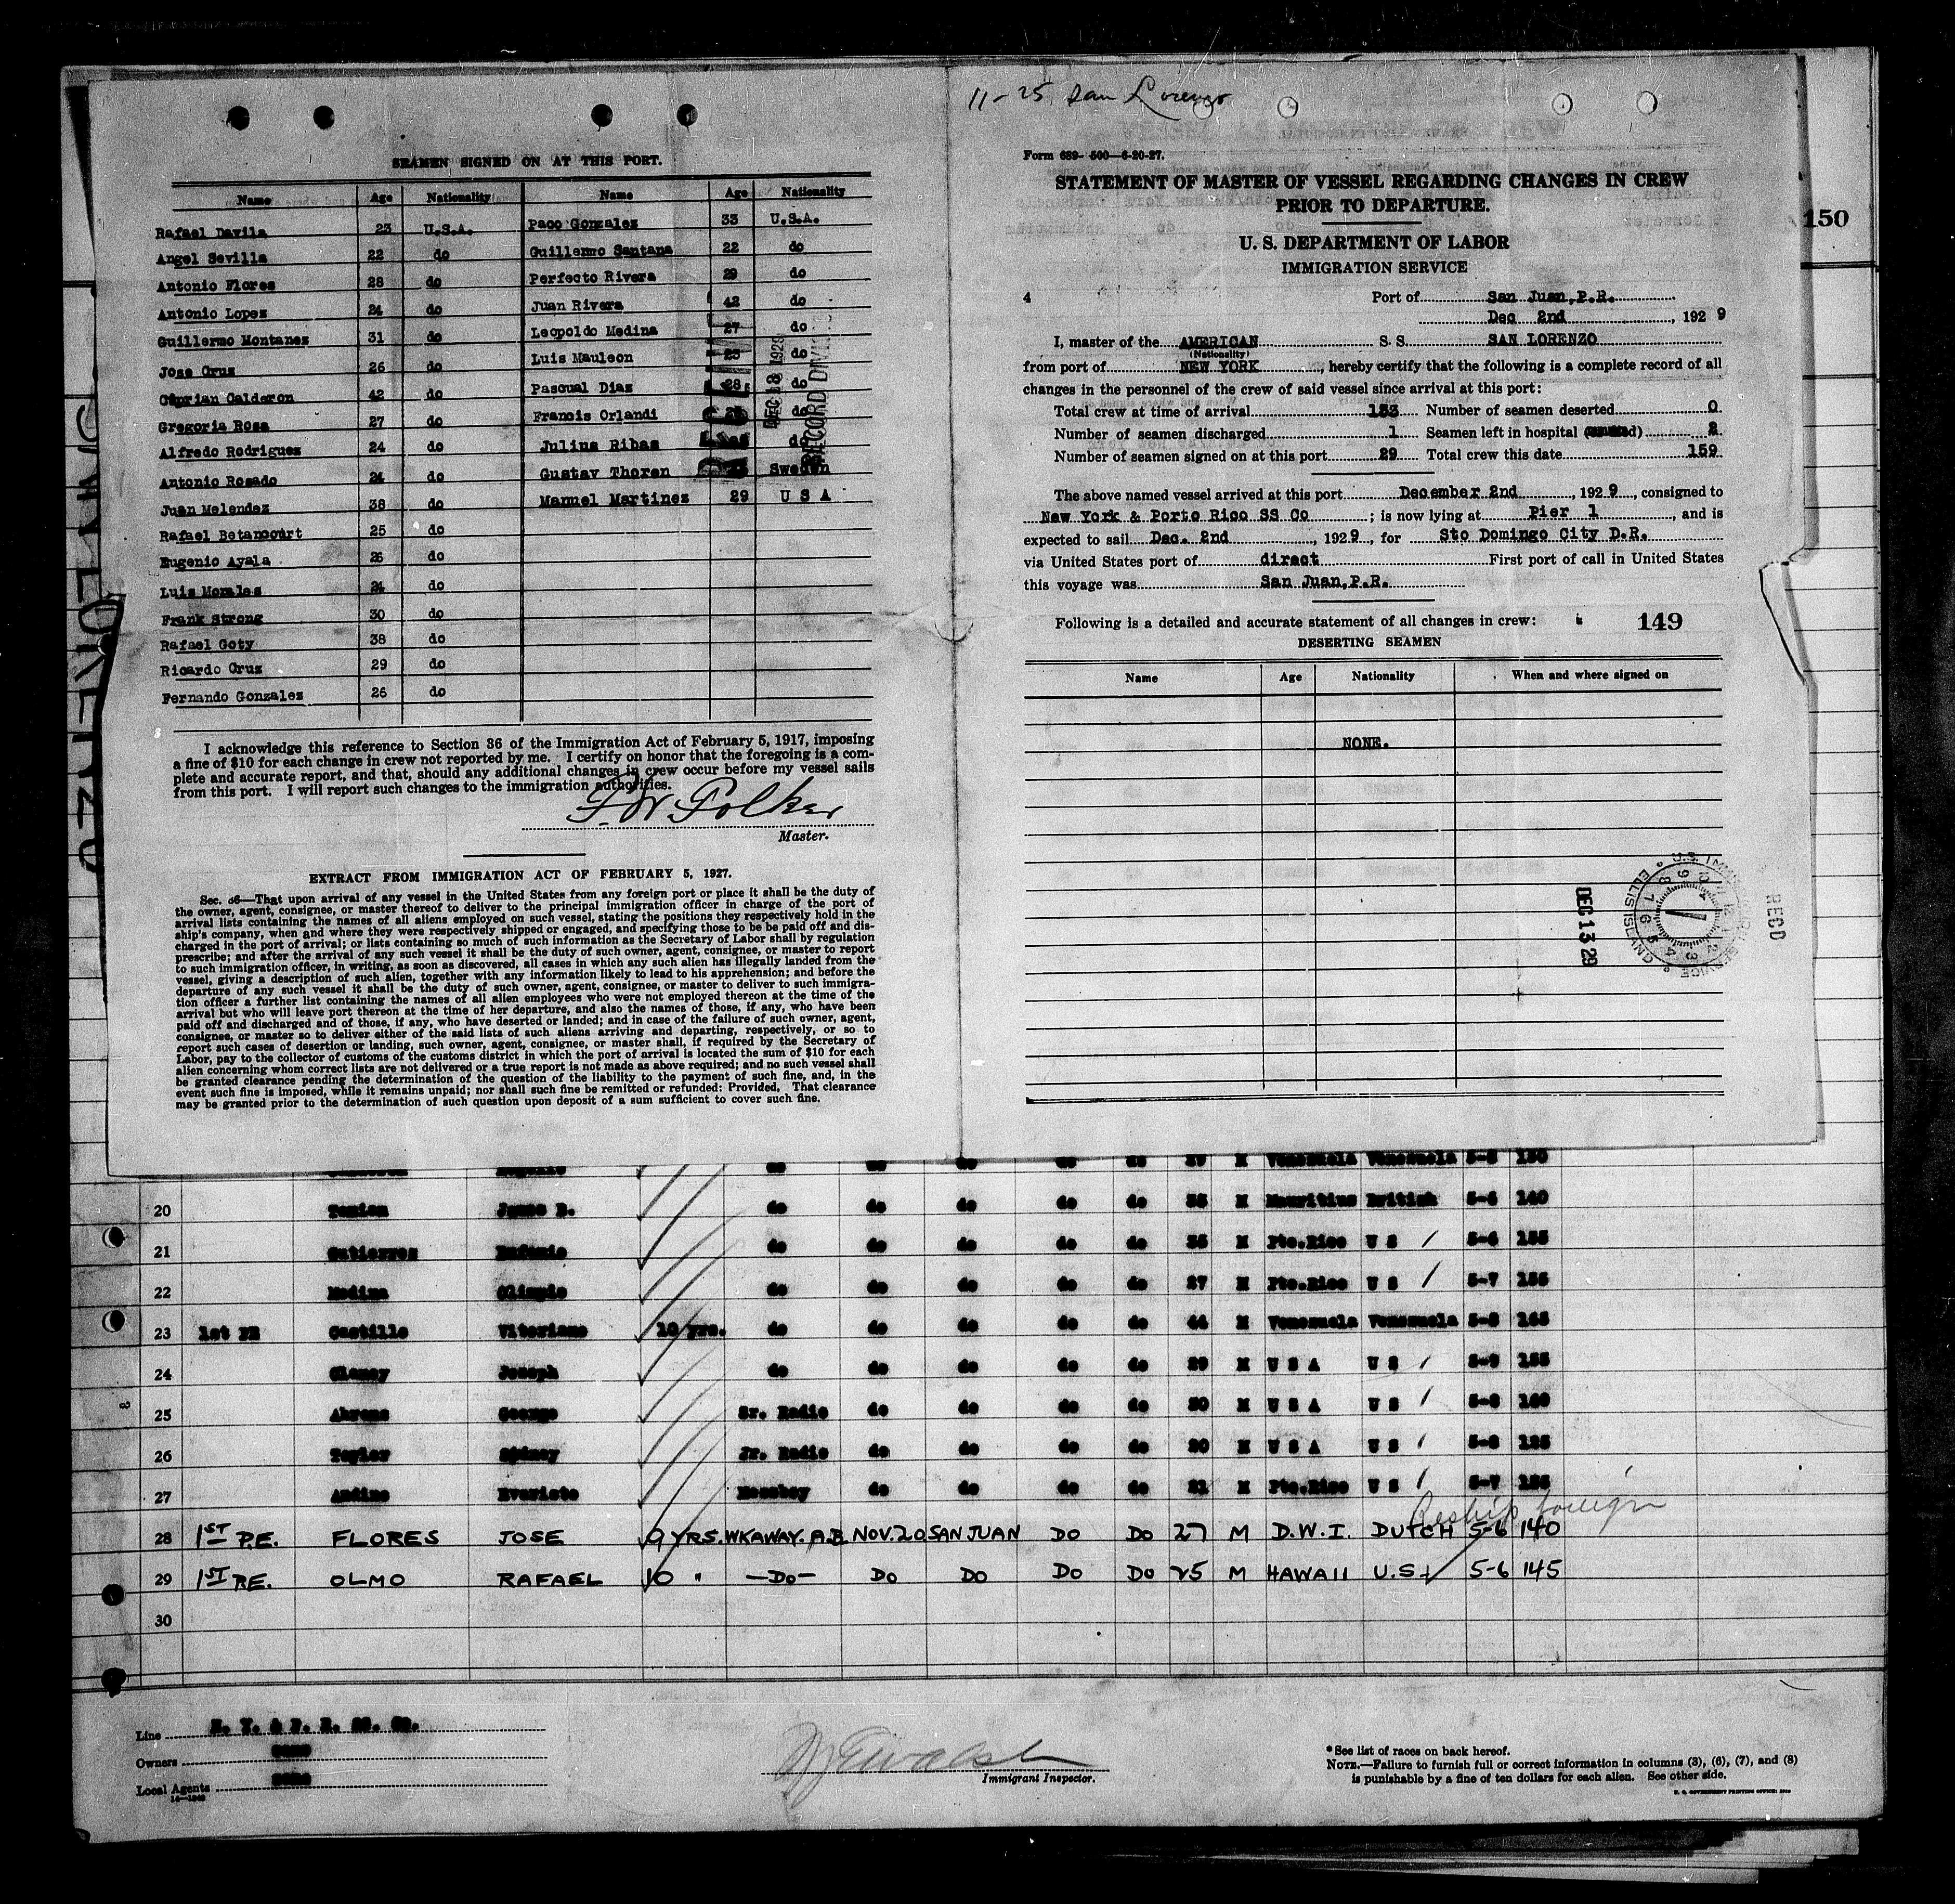 11-25 San Lorenzo
SEAMEN SIGNED ON AT THIS PORT.
Name Age Nationality Name Age Nationality
Rafael Davila 23 U.S.A. Paco Gonzalez 33 U.S.A.
Angel Sevilla 22 do Guillermo Santana 22 do
Antonio Flores 28 do Perfecto Rivera 29 do
Antonio Lopez 24 do Juan Rivera 42 do
Guillermo Montanez 31 do Leopoldo Medina 27 do
Jose Cruz 26 do Luis Mauleon 23 do
Ciprian Calderon 42 do Pascual Diaz 28 do
Gregoria Rosa 27 do Francis Orlandi do
Alfredo Rodriguez 24 do Julius Ribas do
Antonio Rosado 24 do Gustav Thoren Sweden
Juan Melendez 38 do Manuel Martinez 29 U S A
Rafael Betancourt 25 do
Eugenio Ayala 26 do
Luis Morales 24 do
Frank Strong 30 do
Rafael Goty 38 do
Ricardo Cruz 29 do
Fernando Gonzalez 26 do
RECORD DIVISION
I acknowledge this reference to Section 36 of the Immigration Act of February 5, 1917, imposing
a fine of $10 for each change in crew not reported by me. I certify on honor that the foregoing is a com-
plete and accurate report, and that, should any additional changes in crew occur before my vessel sails
from this port. I will report such changes to the immigration authorities.
Master.
EXTRACT FROM IMMIGRATION ACT OF FEBRUARY 5, 1927.
Sec. 36—That upon arrival of any vessel in the United States from any foreign port or place it shall be the duty of
the owner, agent, consignee, or master thereof to deliver to the principal immigration officer in charge of the port of
arrival lists containing the names of all aliens employed on such vessel, stating the positions they respectively hold in the
ship's company, when and where they were respectively shipped or engaged, and specifying those to be be paid off and dis-
charged in the port of arrival; or lists containing so much of such information as the Secretary of Labor shall by regulation
prescribe; and after the arrival of any such vessel it shall be the duty of such owner, agent, consignee, or master to report
to such immigration officer, in writing, as soon as discovered, all cases in which any such alien has illegally landed from the
vessel, giving a description of such alien, together with any information likely to lead to his apprehension; and before the
departure of any such vessel it shall be the duty of such owner, agent, consignee, or master to deliver to such immigra-
tion officer a further list containing the names of all alien employees who were not employed thereon at the time of the
arrival but who will leave port thereon at the time of her departure, and also the names of those, if any, who have been
paid off and discharged and of those, if any, who have deserted or landed; and in case of the failure of such owner, agent,
consignee, or master so to deliver either of the said lists of such aliens arriving and departing, respectively, or so to
report such cases of desertion or landing, such owner, agent, consignee, or master shall, if required by the Secretary of
Labor, pay to the collector of customs of the customs district in which the port of arrival is located the sum of $10 for each
alien concerning whom correct lists are not delivered or a true report is not made as above required; and no such vessel shall
be granted clearance pending the determination of the question of the liability to the payment of such fine, and, in the
event such fine is imposed, while it remains unpaid; nor shall such fine be remitted or refunded: Provided, That clearance
may be granted prior to the determination of such question upon deposit of a sum sufficient to cover such fine.
Form 689- 500—6-20-27.
STATEMENT OF MASTER OF VESSEL REGARDING CHANGES IN CREW
PRIOR TO DEPARTURE.
U. S. DEPARTMENT OF LABOR
IMMIGRATION SERVICE
150
4 Port of San Juan,P.R.
Dec 2nd, 1929
I, master of the AMERICAN S. S. SAN LORENZO
(Nationality)
from port of NEW YORK, hereby certify that the following is a complete record of all
changes in the personnel of the crew of said vessel since arrival at this port:
Total crew at time of arrival 133 Number of seamen deserted 0
Number of seamen discharged 1 Seamen left in hospital 2
Number of seamen signed on at this port 29 Total crew this date 159
The above named vessel arrived at this port December 2nd, 1929, consigned to
New York & Porto Rico SS Co; is now lying at Pier 1, and is
expected to sail Dec. 2nd, 1929, for Sto Domingo City D.R.
via United States port of direct First port of call in United States
this voyage was San Juan,P.R.
Following is a detailed and accurate statement of all changes in crew: 149
DESERTING SEAMEN
Name Age Nationality When and where signed on
NONE.
DEC 13 29
ELLIS ISLAND
RECD
20 James B. do do do do do M Mauritius British 5-6 140
21 Gutierrez do do do do 35 M Pto.Rico U S 5-6 155
22 Medina Olimpio do do do do 27 M Pto.Rico U S 5-7 155
23 1st PE Castillo Vitoriano 10 yrs. do do do do do 44 M Venezuela Venezuela 5-8 165
24 Clancy Joseph do do do do do 29 M U S A U S 5-9 155
25 Ahrens George Sr. Radio do do do do 30 M U S A U S 5-8 160
26 Taylor Sydney Jr. Radio do do do do 20 M U S A U S 5-8 135
27 Andino Evaristo Messboy do do do do 21 M Pto.Rico U S 5-7
Reship foreign
28 1ST P.E. FLORES JOSE 9 YRS. WKAWAY. A.B. NOV. 20 SAN JUAN DO DO 27 M D.W.I. DUTCH 5-6 140
29 1ST P.E. OLMO RAFAEL 10 " —DO— DO DO DO DO 25 M HAWAII U.S. 5-6 145
30
Line N. Y. & P. R. SS. CO.
Owners
Local Agents
Immigrant Inspector.
*See list of races on back hereof.
NOTE.—Failure to furnish full or correct information in columns (3), (6), (7), and (8)
is punishable by a fine of ten dollars for each alien. See other side.